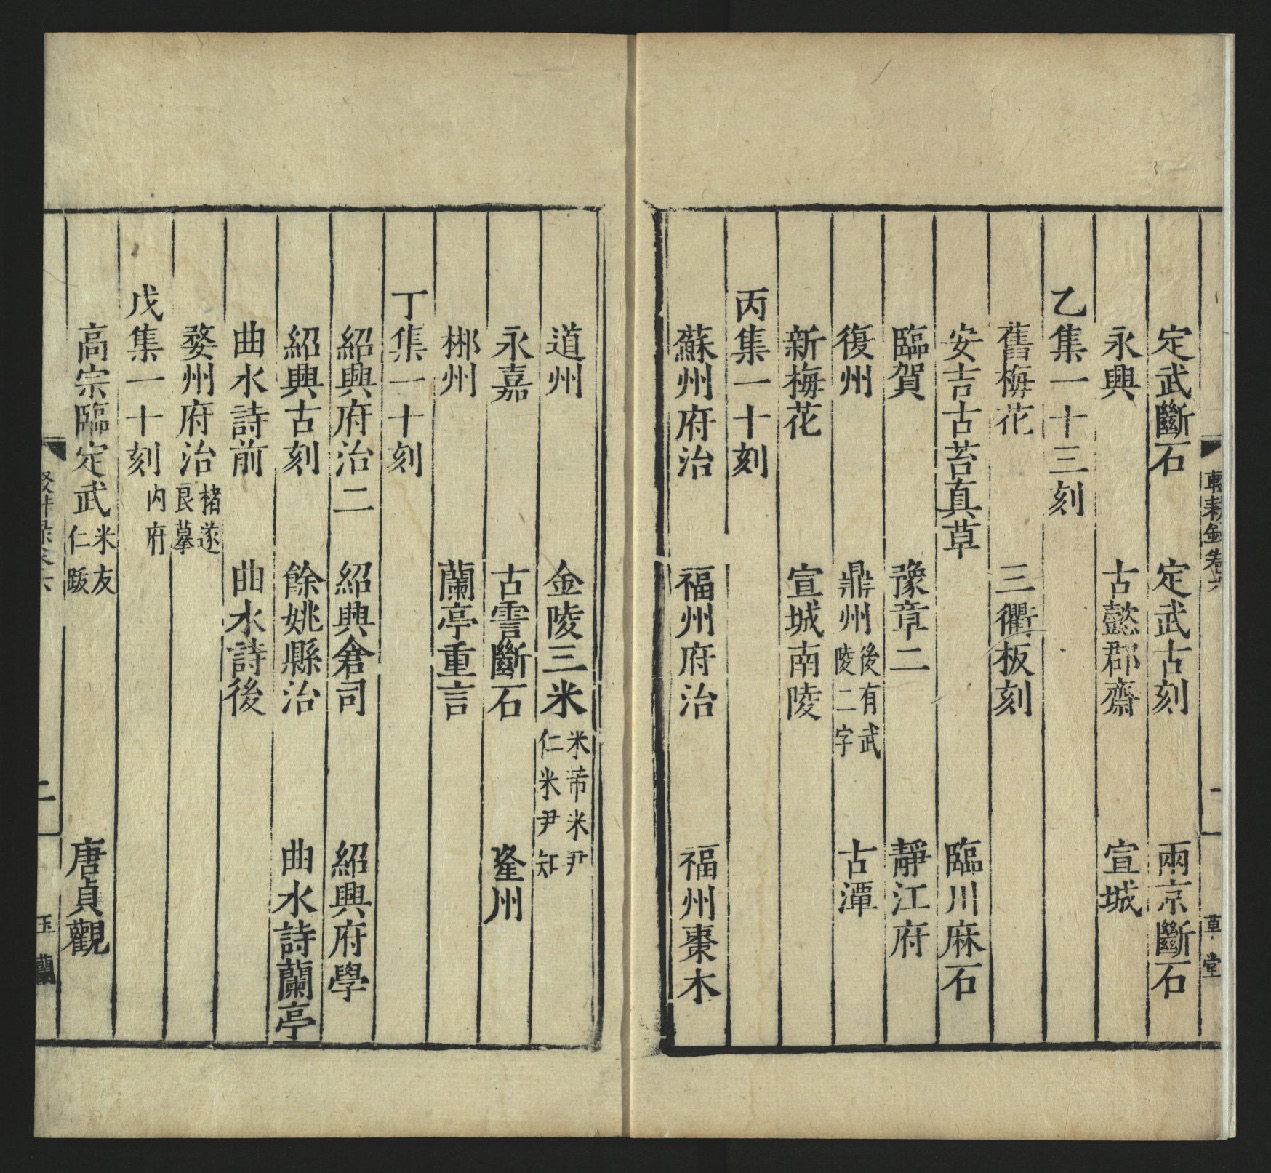 定武斷石　定武古刻　兩京斷石
永興　古懿郡齋　宣城
乙集一十三刻
舊梅花　三衢板刻
安吉古苔真草　臨川麻石
臨賀　豫章二　靜江府
復州　鼎州後有武陵二字　古潭
新梅花　宣城南陵
丙集一十刻
蘇州府治　福州府治　福州棗木
道州　金陵三米米芾米尹仁米尹知
永嘉　古雪斷石　逢州
郴州　蘭亭重言
丁集一十刻
紹興府治二　紹興倉司　紹興府學
紹興古刻　餘姚縣治　曲水詩蘭亭
曲水詩前　曲水詩後
婺州府治褚遂良摹
戊集一十刻內府
高宗臨定武米友仁跋　唐貞觀
玉蘭
草堂